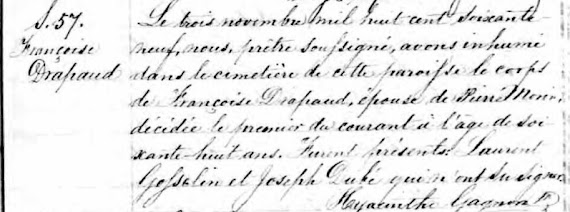 S. 57.
Françoise
Drapaud
Le trois novembre mil huit cent soixante-
neuf, nous, prêtre soussigné, avons inhumé
dans le cimetière de cette paroisse le corps
de Françoise Drapaud, épouse de Pierre Morin,
décidée le premier du courant à l'âge de soi
xante-huit ans. Furent présents: Laurent
Gosselin et Joseph Dubé qui n'ont su signer
Hyacinthe Gagnon Ptre